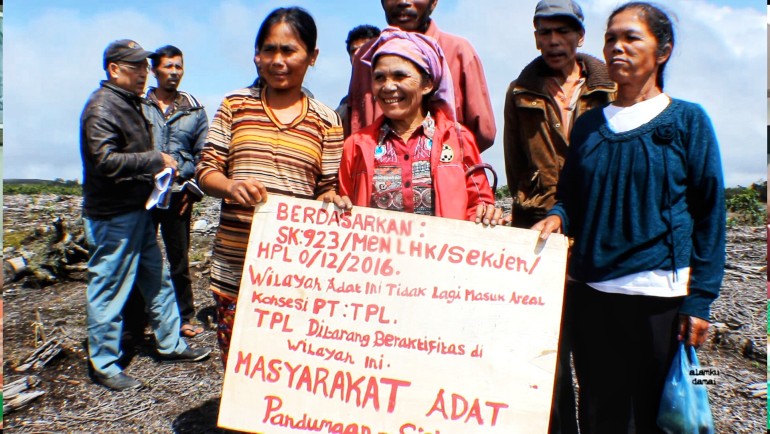 BERDASARKAN :
SK:923/MENLHK/SEKJEN/
HPL 0/12/2016.
Wilayah Adat Ini Tidak Lagi Masuk Areal
Konsesi PT:TPL.
TPL Dilarang Beraktifitas di
Wilayah Ini.
MASYARAKAT ADAT
Pandumaan -
alamku
damai